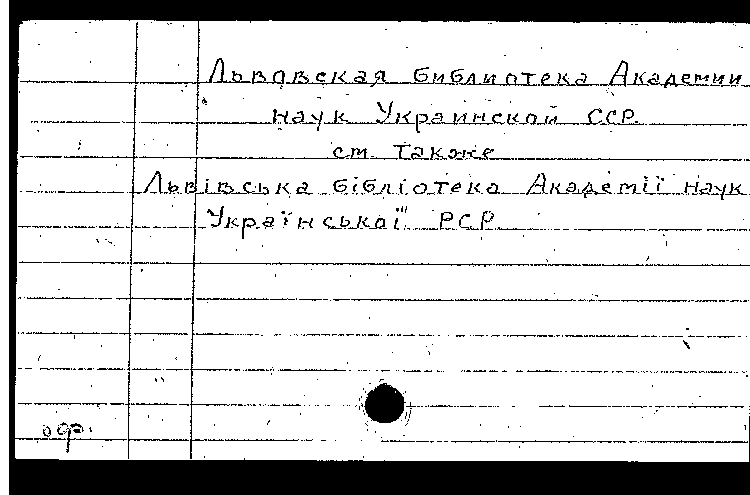 Львовская библиотека Академии
наук Украинской ССР.
см. также
Львівська бібліотека Академії наук
Української РСР.